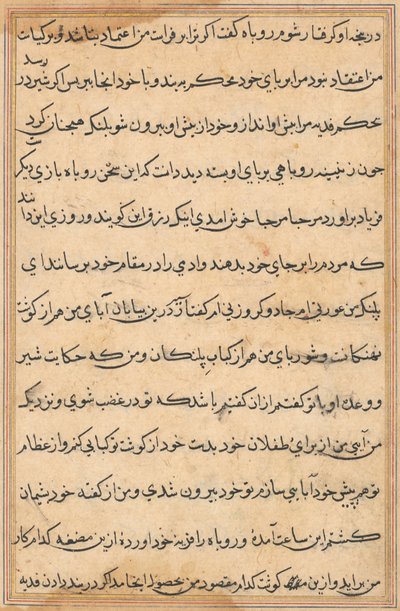 در پنجه او گرفتار شوم روباه گفت اگر ترا بر فراست من اعتماد نباشد و بر کیاست
من اعتقاد نبود مرا بر پای خود محکم ببند و با خود آنجا ببر پس اگر شیر در رسد
محکم فدیه مرا پیش او انداز و خود از پیش او بیرون شو پلنک همچنان کرد
چون زن بیند روباهی بر پای او بسته دید دانست که این سخن روباه بازی دیکر است
فریاد براورد مرحبا مرحبا خوش امدی اینک رزق این کویند و روزی این دانند
که مردم را بر جای خود بدهند و ادمی را در مقام خود برسانند ای
پلنک من عورتی ام جادو کر و زنی ام کفتار در بن بیابان آبای من هم از کوشت
نهنکانست و شوربای من هم از کباب پلنکان و من که حکایت شیر
و وعده او با تو کفتم از ان کفتم باشد که تو در غضب شوی و نزدیک
من آیی من از برای طفلان خود بدست خود از کوشت تو کبابی کنم و از عظام
تو هم پیش خود آبایی سازم تو خود بیرون شدی و من از کفته خود پشمان
کشتم این ساعت آمده و روباه را فریه خود اورده ازین مضغه کدام کار
من براید و ازین کوشت کدام مقصود من بحصول انجامد اکر در بند دادن فدیه